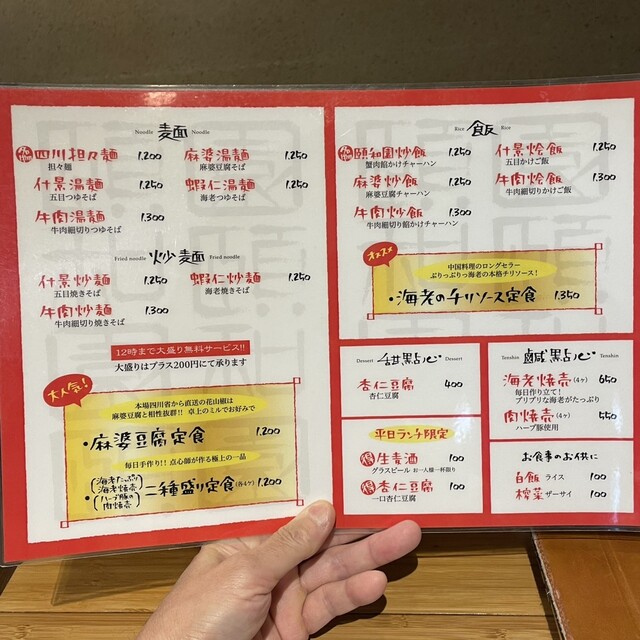 Noodle 麺 Noodle
四川担々麺 1.200
担々麺
麻婆湯麺 1.250
麻婆豆腐そば
什景湯麺 1.250
五目つゆそば
蝦仁湯麺 1.250
海老つゆそば
牛肉湯麺 1.300
牛肉細切りつゆそば
Fried noodle 炒麺 Fried noodle
什景炒麺 1.250
五目焼きそば
蝦仁炒麺 1.250
海老焼きそば
牛肉炒麺 1.300
牛肉細切り焼きそば
12時まで大盛り無料サービス!!
大盛りはプラス200円にて承ります
大人気!
本場四川省から直送の花山椒は
麻婆豆腐と相性抜群!! 卓上のミルでお好みで
・麻婆豆腐定食 1.200
毎日手作り!! 点心師が作る極上の一品
・(海老たっぷり海老焼売 ハーブ豚の肉焼売)二種盛り定食(各4ケ) 1.200
Rice 飯 Rice
頤和園炒飯 1.250
蟹肉餡かけチャーハン
什景烩飯 1.250
五目かけご飯
麻婆炒飯 1.250
麻婆豆腐チャーハン
牛肉烩飯 1.300
牛肉細切りかけご飯
牛肉炒飯 1.300
牛肉細切り餡かけチャーハン
オススメ
中国料理のロングセラー
ぷりっぷりっ海老の本格チリソース!
・海老のチリソース定食 1.350
Dessert 甜點心 Dessert
杏仁豆腐 400
杏仁豆腐
平日ランチ限定
得 生麦酒 100
グラスビール お一人様一杯限り
得 杏仁豆腐 100
一口杏仁豆腐
Tenshin 鹹點心 Tenshin
海老焼売(4ヶ) 650
毎日作り立て!
プリプリな海老がたっぷり
肉焼売(4ヶ) 550
ハーブ豚使用
お食事のお供に
白飯 ライス 100
榨菜 ザーサイ 100